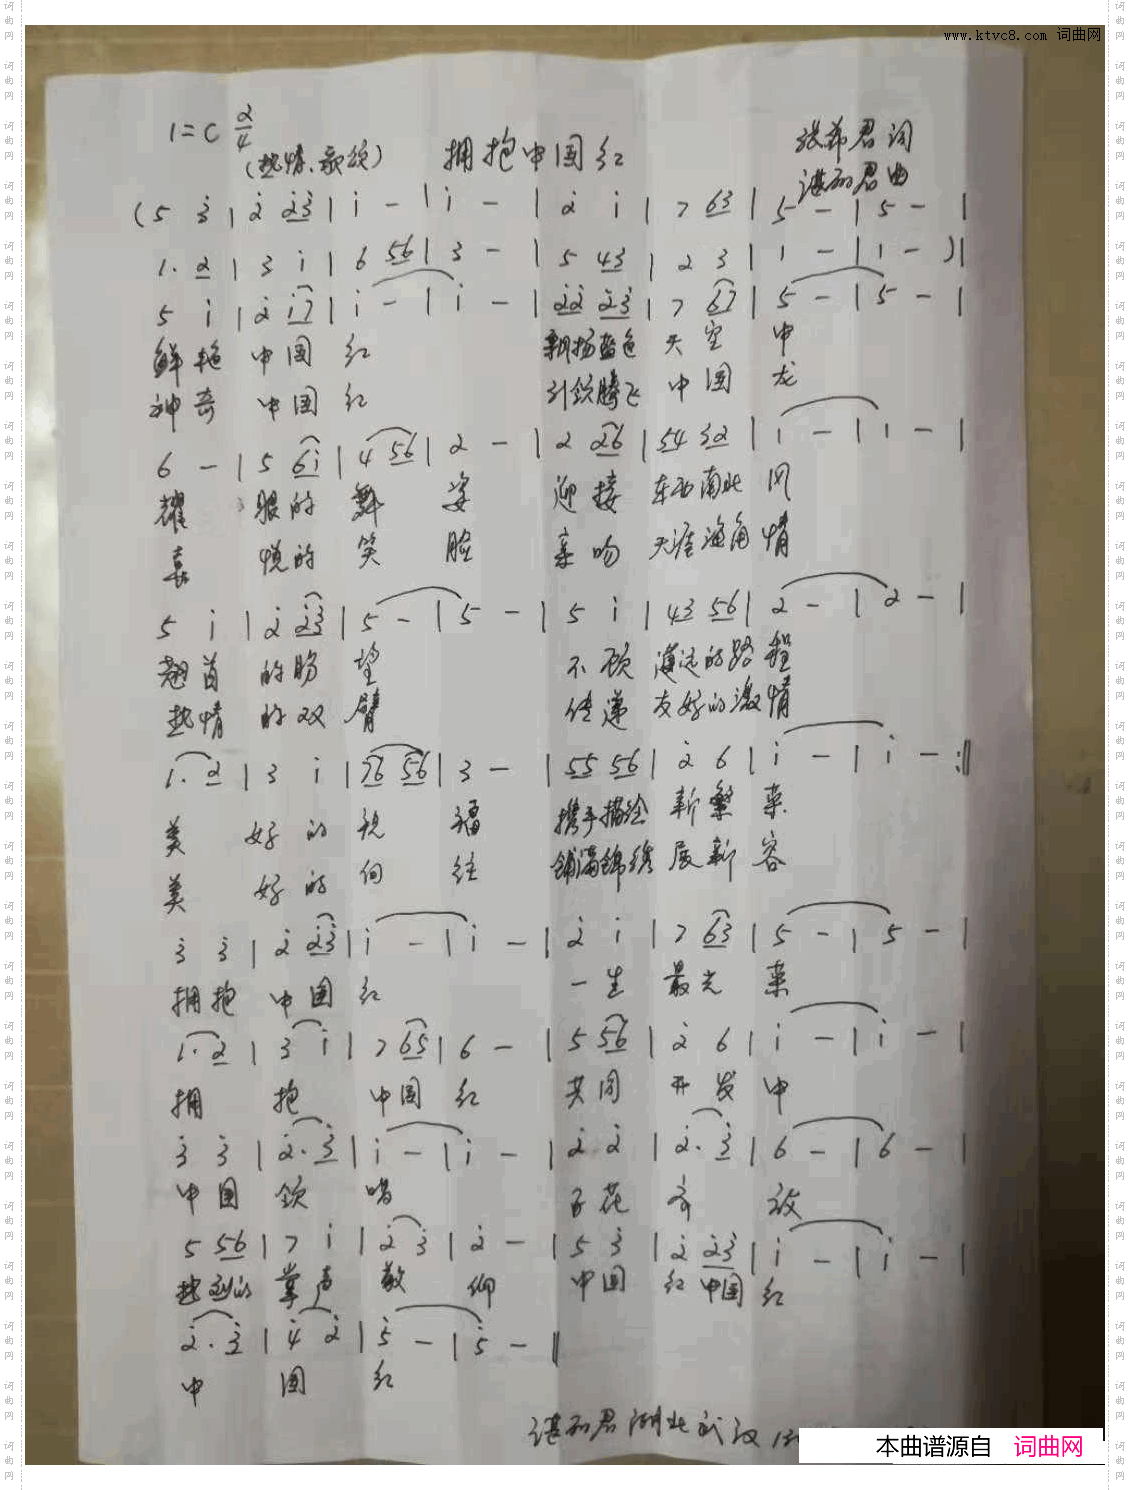 www.ktvc8.com 词曲网
1=C 2/4
(热情、歌颂) 拥抱中国红 词
君曲
(5 3̇ | 2̇ 2̇3̇ | 1̇ - | 1̇ - | 2̇ 1̇ | 7 63 | 5 - | 5 - |
1. 2 | 3 1̇ | 6 56 | 3 - | 5 43 | 2 3 | 1 - | 1 - )|
5 1̇ | 2̇ 1̇7 | 1̇ - | 1̇ - | 2̇2̇ 2̇3̇ | 7 67 | 5 - | 5 - |
鲜艳 中国 红 飘扬蓝色 天空 中
神奇 中国 红 引领腾飞 中国 龙
6 - | 5 61̇ | 4 56 | 2 - | 2 26 | 54 32 | 1 - | 1 - |
耀 眼的 舞 姿 迎接 东西南北 风
喜 悦的 笑 脸 亲吻 天涯海角 情
5 1̇ | 2̇ 2̇3̇ | 5 - | 5 - | 5 1̇ | 43 56 | 2 - | 2 - |
翘首 的盼 望 不顾 遥远的路 程
热情 的双 臂 传递 友好的激 情
1. 2 | 3 1̇ | 76 56 | 3 - | 55 56 | 2̇ 6 | 1̇ - | 1̇ - :‖
美 好的 祝 福 携手描绘 新繁 荣
美 好的 向 往 铺满锦绣 展新 容
3̇ 3̇ | 2̇ 2̇3̇ | 1̇ - | 1̇ - | 2̇ 1̇ | 7 63 | 5 - | 5 - |
拥抱 中国 红 一生 最光 荣
1. 2 | 3 1̇ | 7 65 | 6 - | 5 56 | 2̇ 6 | 1̇ - | 1̇ - |
拥 抱 中国 红 共同 开发 中
3̇ 3̇ | 2̇. 3̇ | 1̇ - | 1̇ - | 2̇ 2̇ | 2̇. 3̇ | 6 - | 6 - |
中国 领 唱 百花 齐 放
5 56 | 7 1̇ | 2̇ 3̇ | 2̇ - | 5 3̇ | 2̇ 2̇3̇ | 1̇ - | 1̇ - |
热烈的 掌声 敬 仰 中国 红 中国 红
2̇. 3̇ | 4̇ 2̇ | 5̇ - | 5̇ - ‖
中 国 红
君湖北武汉
本曲谱源自 词曲网